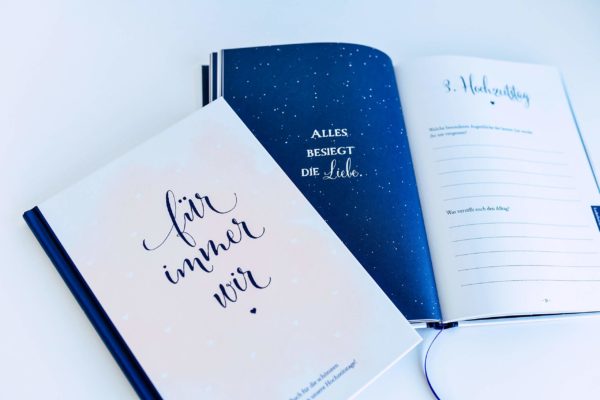 für
immer
wir
buch für die schönsten
unsere Hochzeitstage!
ALLES
BESIEGT
DIE Liebe.
3. Hochzeitstag
Welche besonderen Augenblicke
ihr nie vergessen?
Was versüßt euch den Alltag?